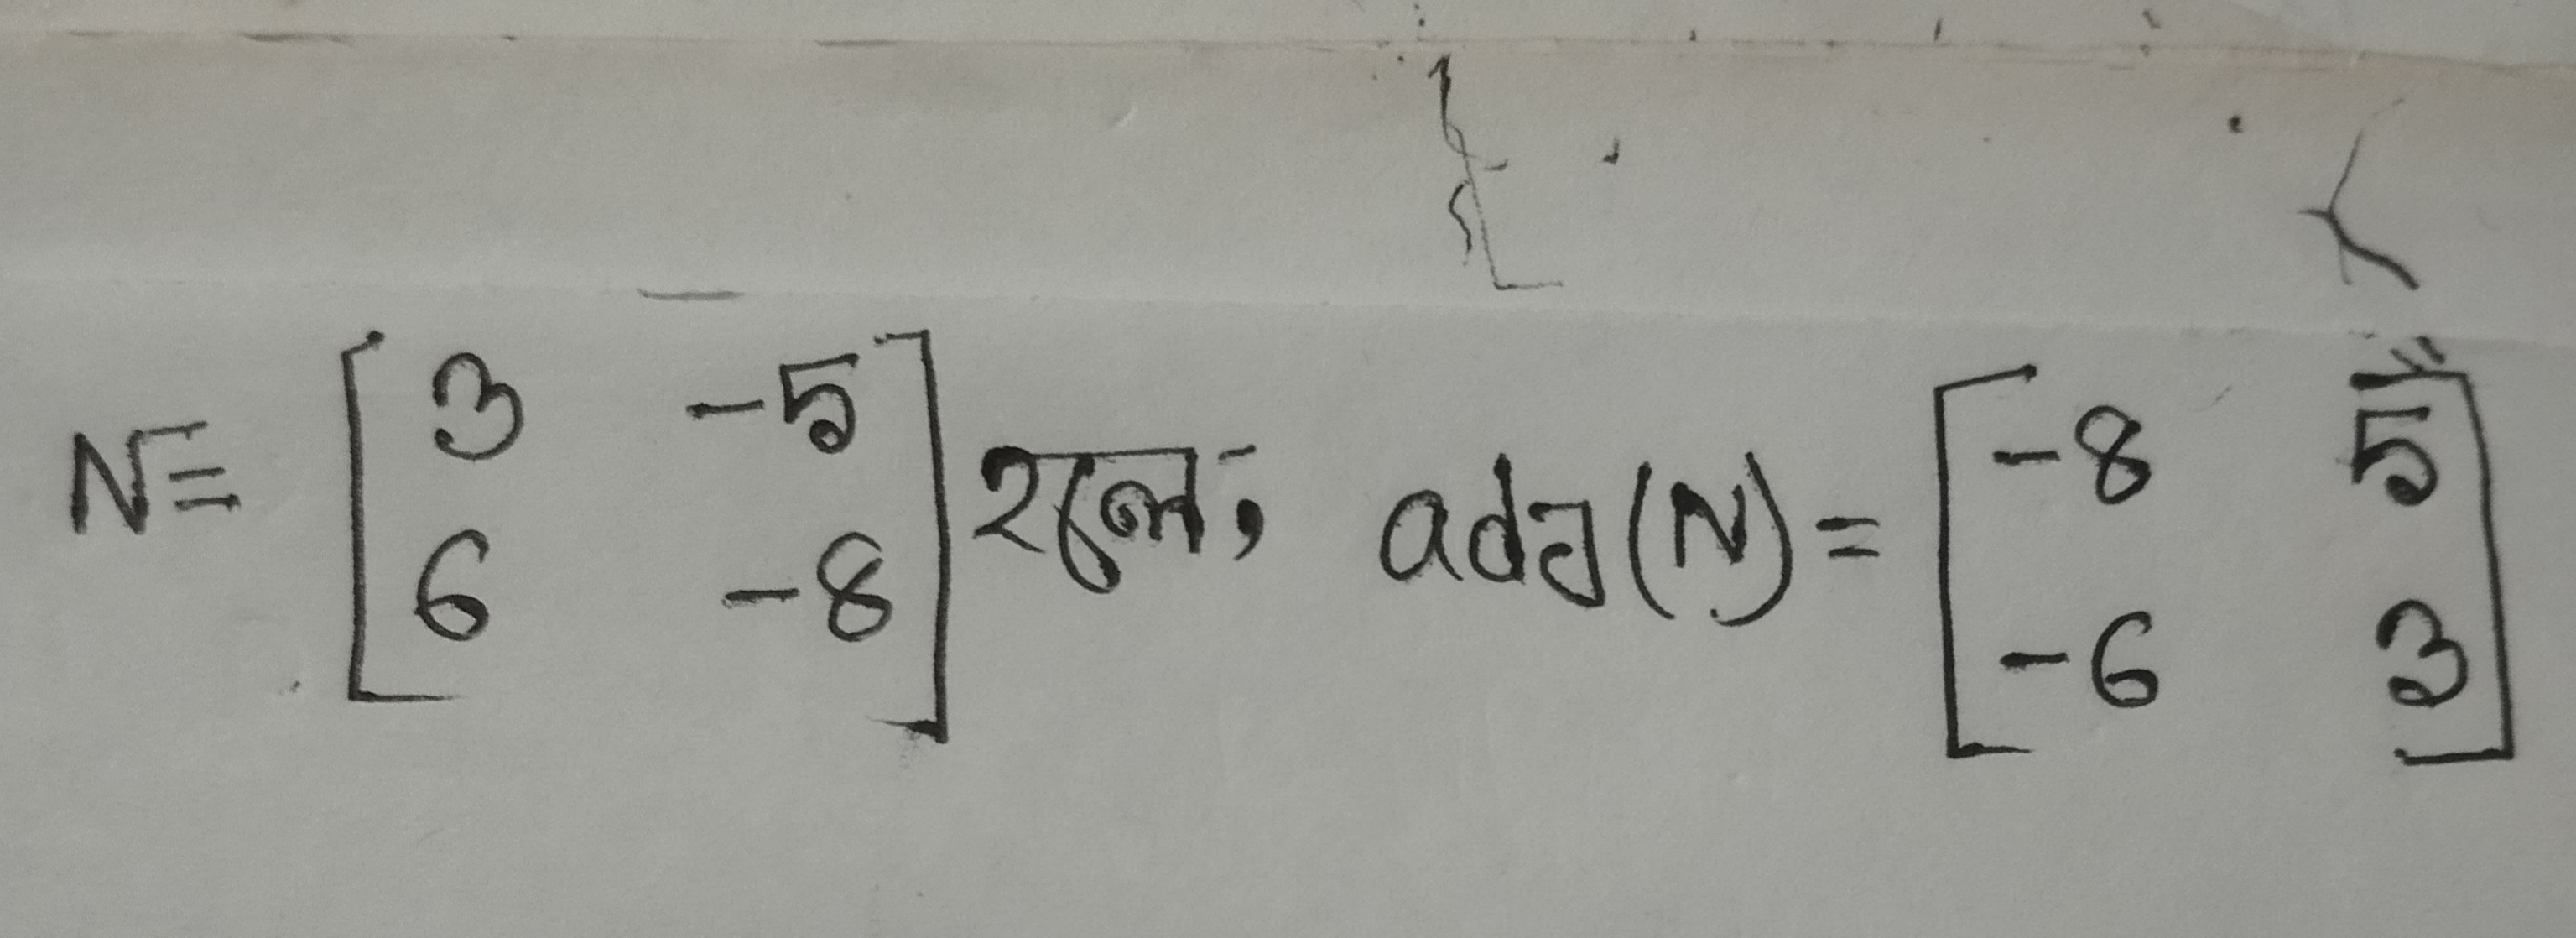 N= [3 -5
6 -8] হলে, adj(N) = [-8 5
-6 3]